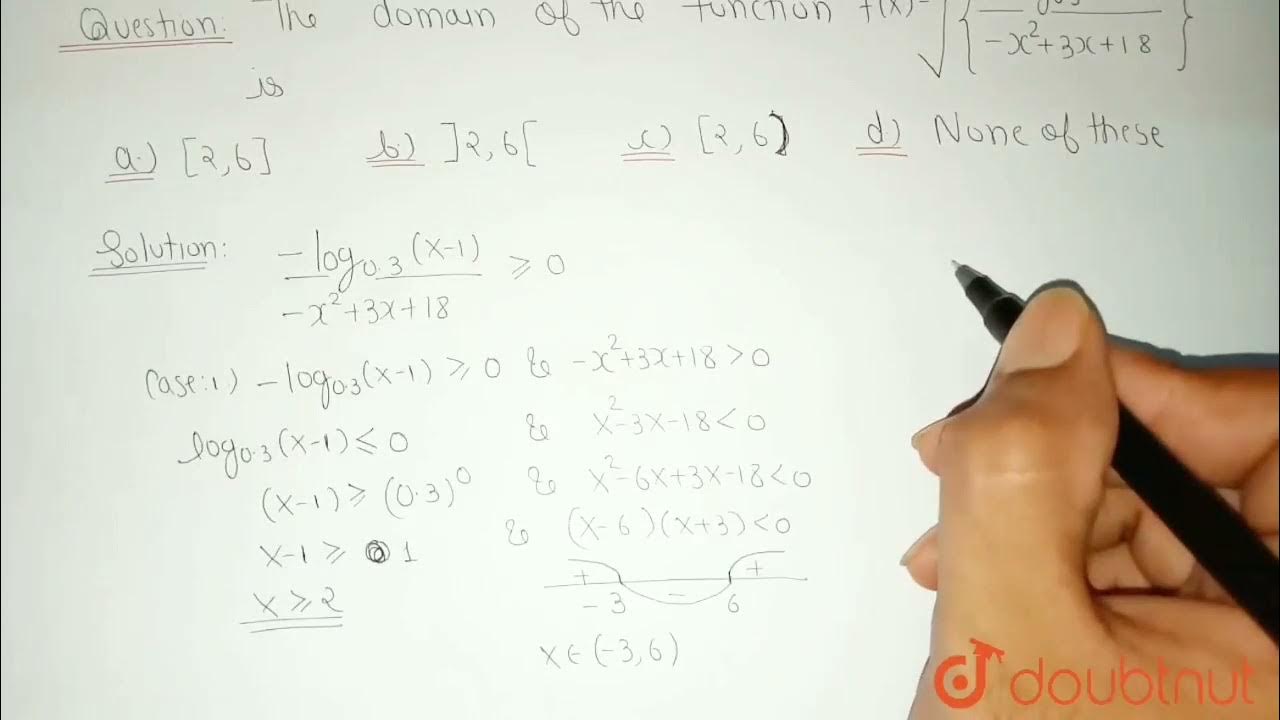 Question: The domain of the function f(x)=
√{ / -x²+3x+18 }
is
a.) [2,6] b.) ]2,6[ c.) [2,6) d.) None of these
Solution: -log₀.₃(x-1) / -x²+3x+18 ≥ 0
Case:1) -log₀.₃(x-1) ≥ 0 & -x²+3x+18 > 0
log₀.₃(x-1) ≤ 0 & x²-3x-18 < 0
(x-1) ≥ (0.3)⁰ & x²-6x+3x-18 < 0
x-1 ≥ 1 & (x-6)(x+3) < 0
x ≥ 2
+ - +
-3 6
x ∈ (-3,6)
doubtnut